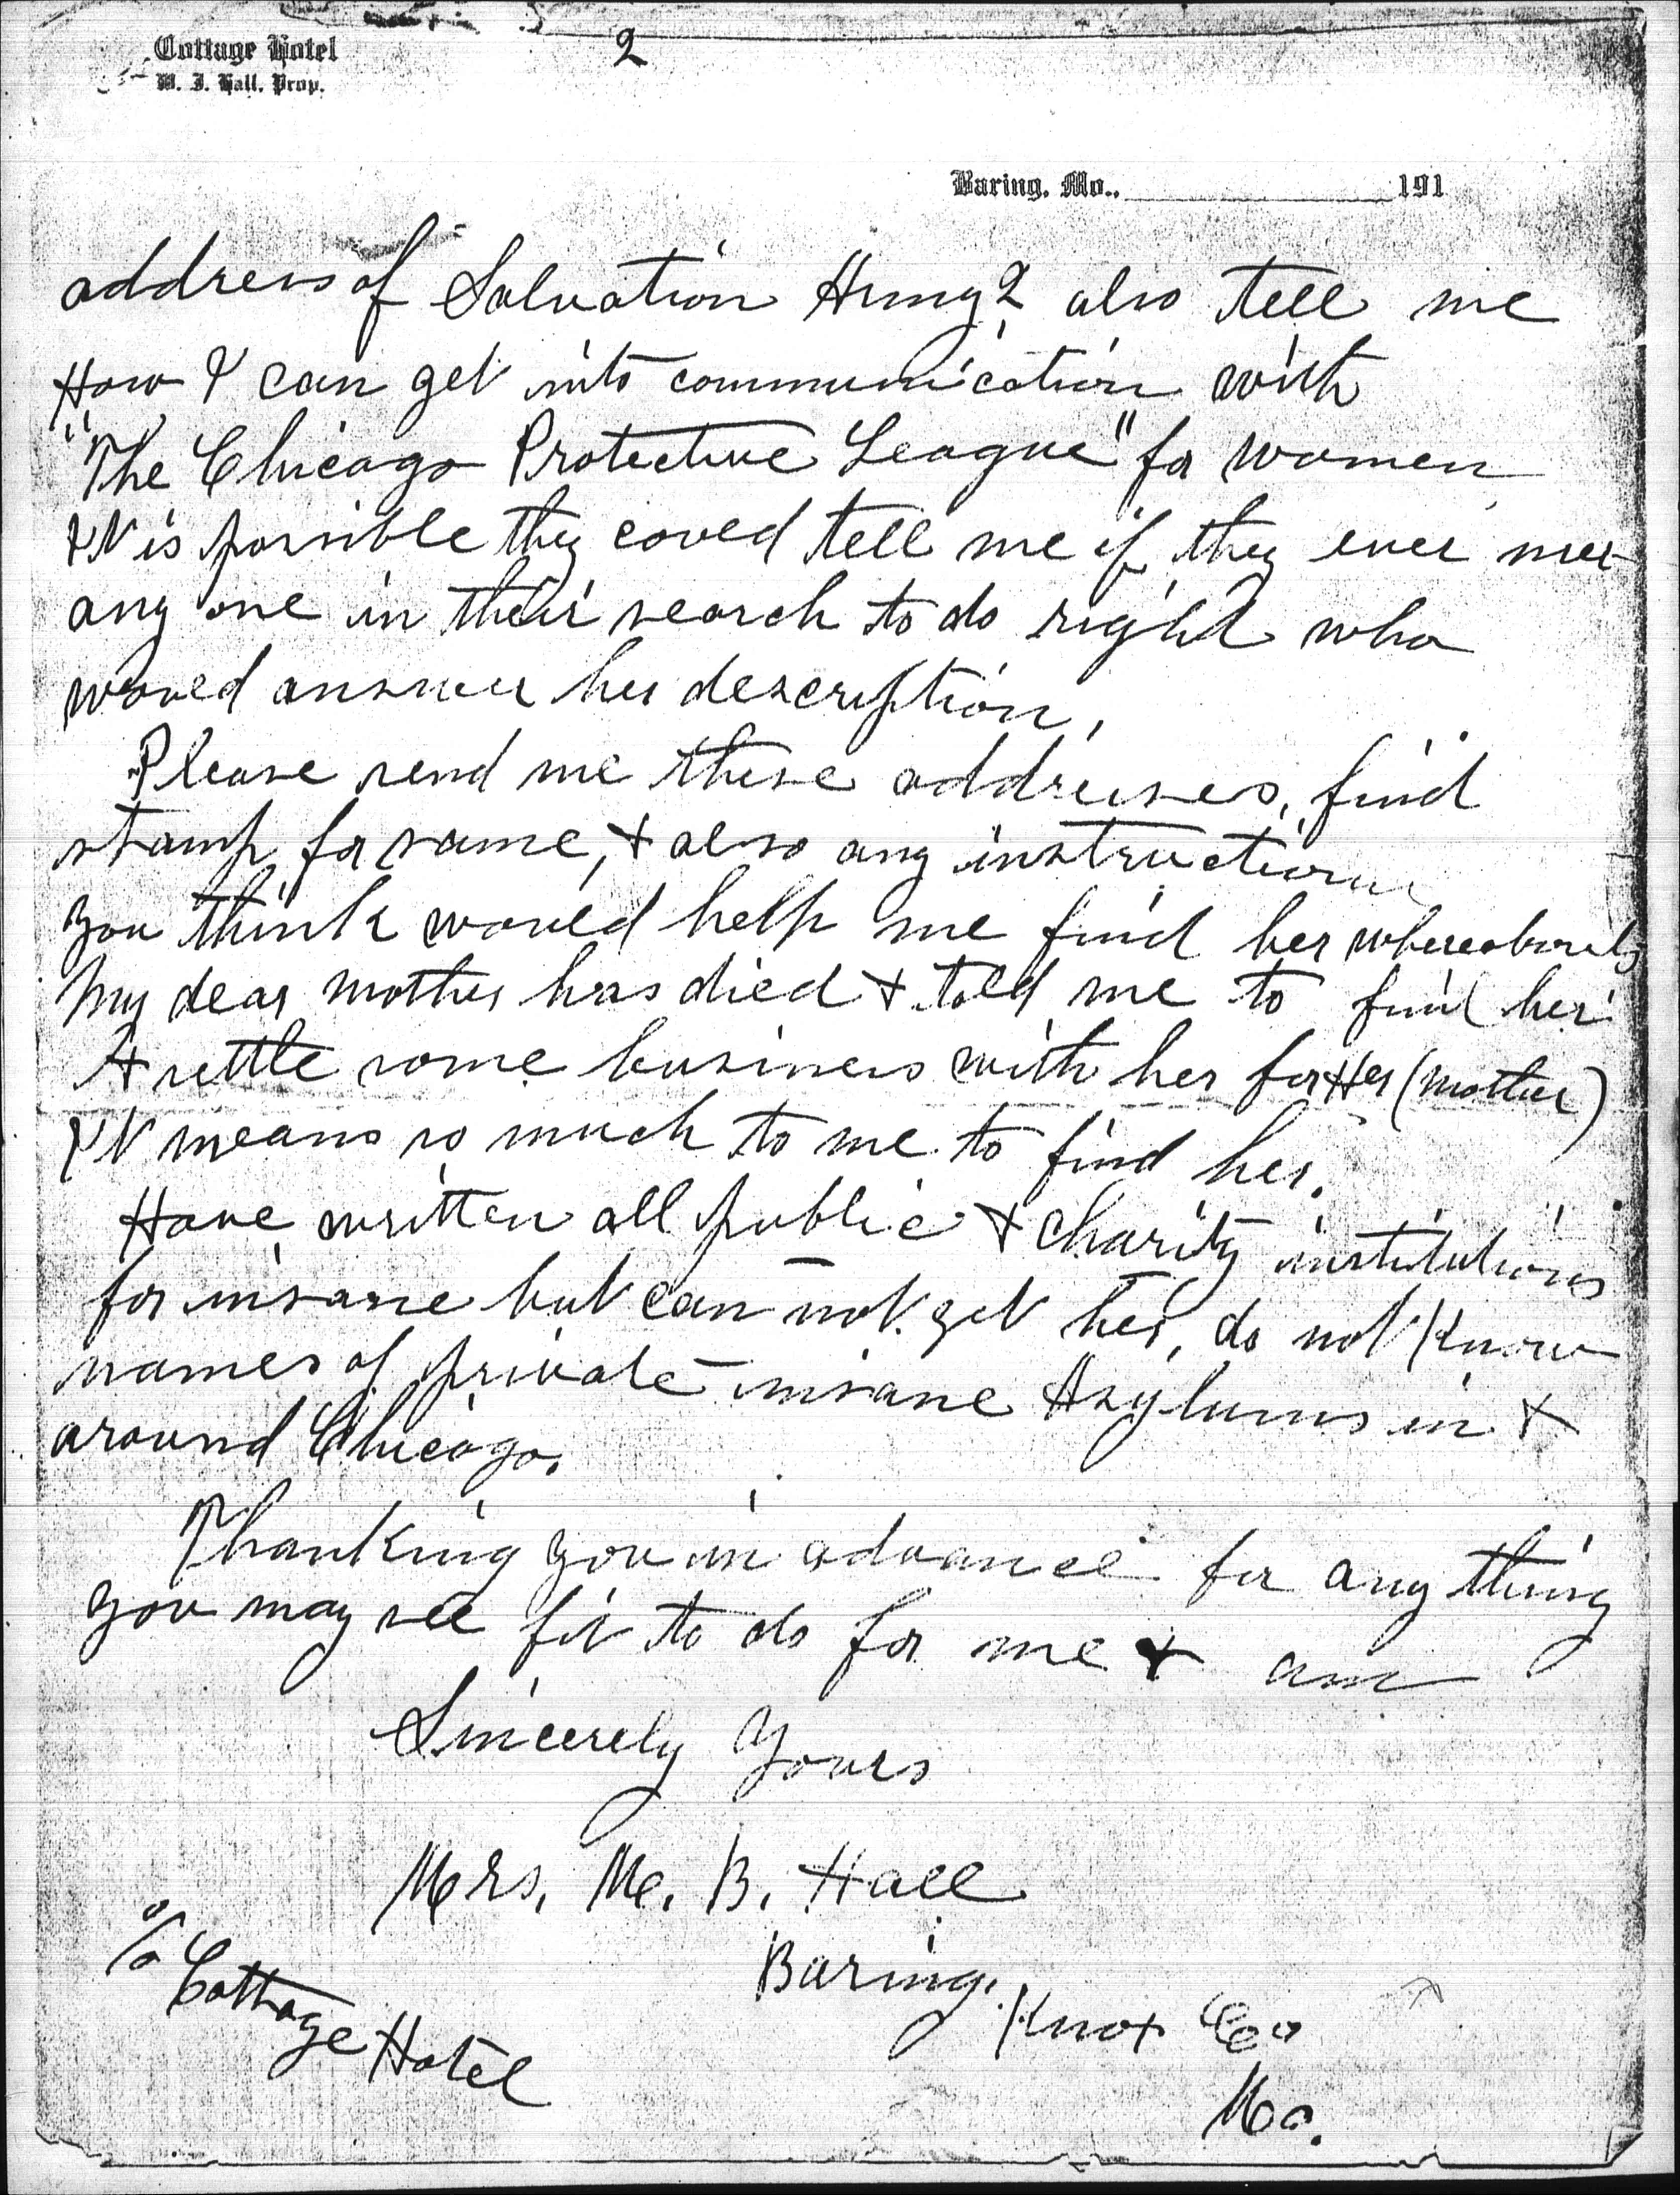 Cottage Hotel
W. J. Hall, Prop.
2
Baring, Mo., 191
address of Salvation Army? also tell me
How I can get into communication with
"The Chicago Protective League" for women
It is possible they could tell me if they ever met
any one in their search to do right who
would answer her description.
Please send me these addresses, find
stamp for same, + also any instructions
you think would help me find her whereabouts
My dear mother has died + told me to find her
+ settle some business with her for Her (Mother)
It means so much to me to find her.
Have written all public + charity institutions
for insane but can not get her, do not Know
names of private insane Asylums in +
around Chicago.
Thanking you in advance for any thing
you may see fit to do for me + am
Sincerely Yours
Mrs. M. B. Hall
Baring,
Knox Co
Mo.
c/o Cottage Hotel